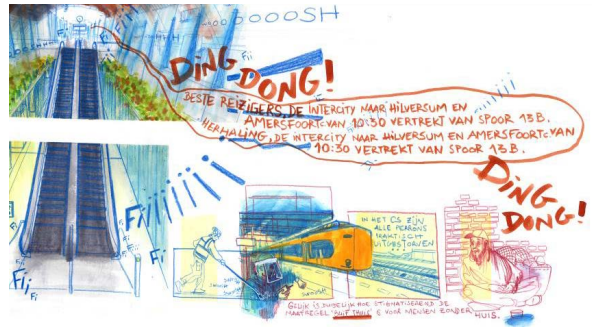 OOOOOSH
Fii
DING DONG!
BESTE REIZIGERS, DE INTERCITY NAAR HILVERSUM EN
AMERSFOORT VAN 10:30 VERTREKT VAN SPOOR 13B.
HERHALING, DE INTERCITY NAAR HILVERSUM EN AMERSFOORT VAN
10:30 VERTREKT VAN SPOOR 13B.
DING
DONG!
Fiiiiiii
Fii
Fi
Fii
Fi
IN HET CS ZIJN
ALLE PERRONS
PRAKTISCH
UITGESTORVEN
IS DUIDELIJK HOE STIGMATISEREND DE
MAATREGEL "BLIJF THUIS" IS VOOR MENSEN ZONDER HUIS.